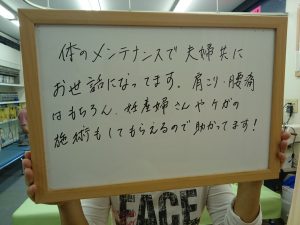 体のメンテナンスで夫婦共に
お世話になってます。肩こり・腰痛
はもちろん、妊産婦さんやケガの
施術もしてもらえるので助かってます!
FACE